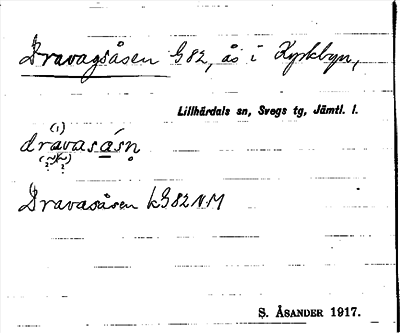 Dravagsåsen G82, ås i Kyrkbyn,
Lillhärdals sn, Svegs tg, Jämtl. l.
(1)
dravasåsn̥
Dravasåsen kG82NM
S. ÅSANDER 1917.